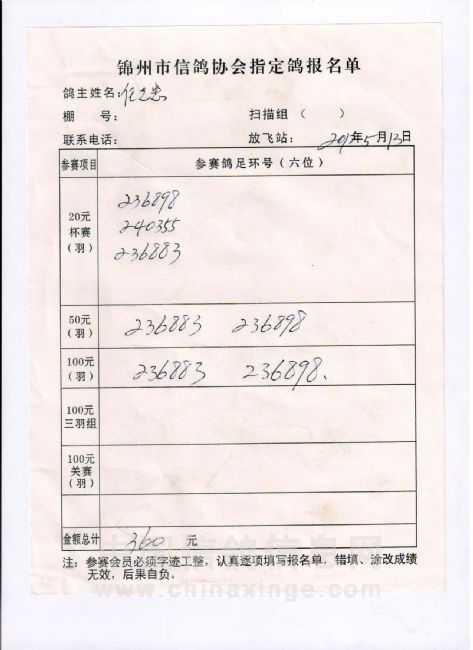 锦州市信鸽协会指定鸽报名单
鸽主姓名:
棚 号: 扫描组 ( )
联系电话: 放飞站: 2015年5月13日
参赛项目 参赛鸽足环号(六位)
20元
杯赛
(羽)
236898
240355
236883
50元
(羽)
236883 236898
100元
(羽)
236883 236898.
100元
三羽组
100元
关赛
(羽)
金额总计 360 元
注: 参赛会员必须字迹工整, 认真逐项填写报名单, 错填、涂改成绩
无效, 后果自负。
www.chinaxinge.com